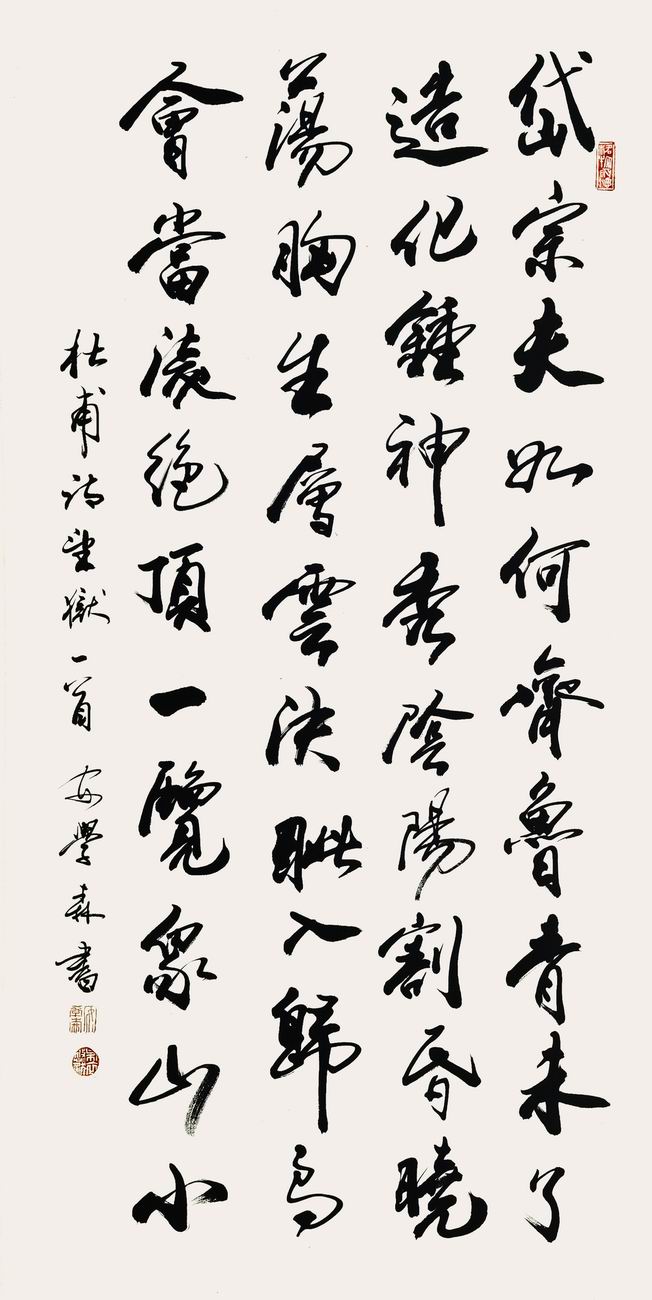 岱宗夫如何齊魯青未了
造化鍾神秀陰陽割昏曉
蕩胸生層雲決眥入歸鳥
會當淩絕頂一覽眾山小
杜甫詩望嶽一首 安學森書